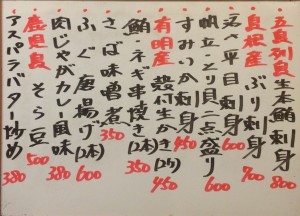 五島列島 生本鮪刺身 800
島根産 ぶり刺身 700
活〆平目刺身 600
帆立とり貝二点盛り 600
すみいか刺身 450
有明産 殻付生かき(2ヶ) 450
鮪ネギ串焼き(2本) 350
さば味噌煮 350
ふぐ唐揚げ(2本) 600
肉じゃがカレー風味 380
鹿児島 そら豆 500
アスパラバター炒め 380